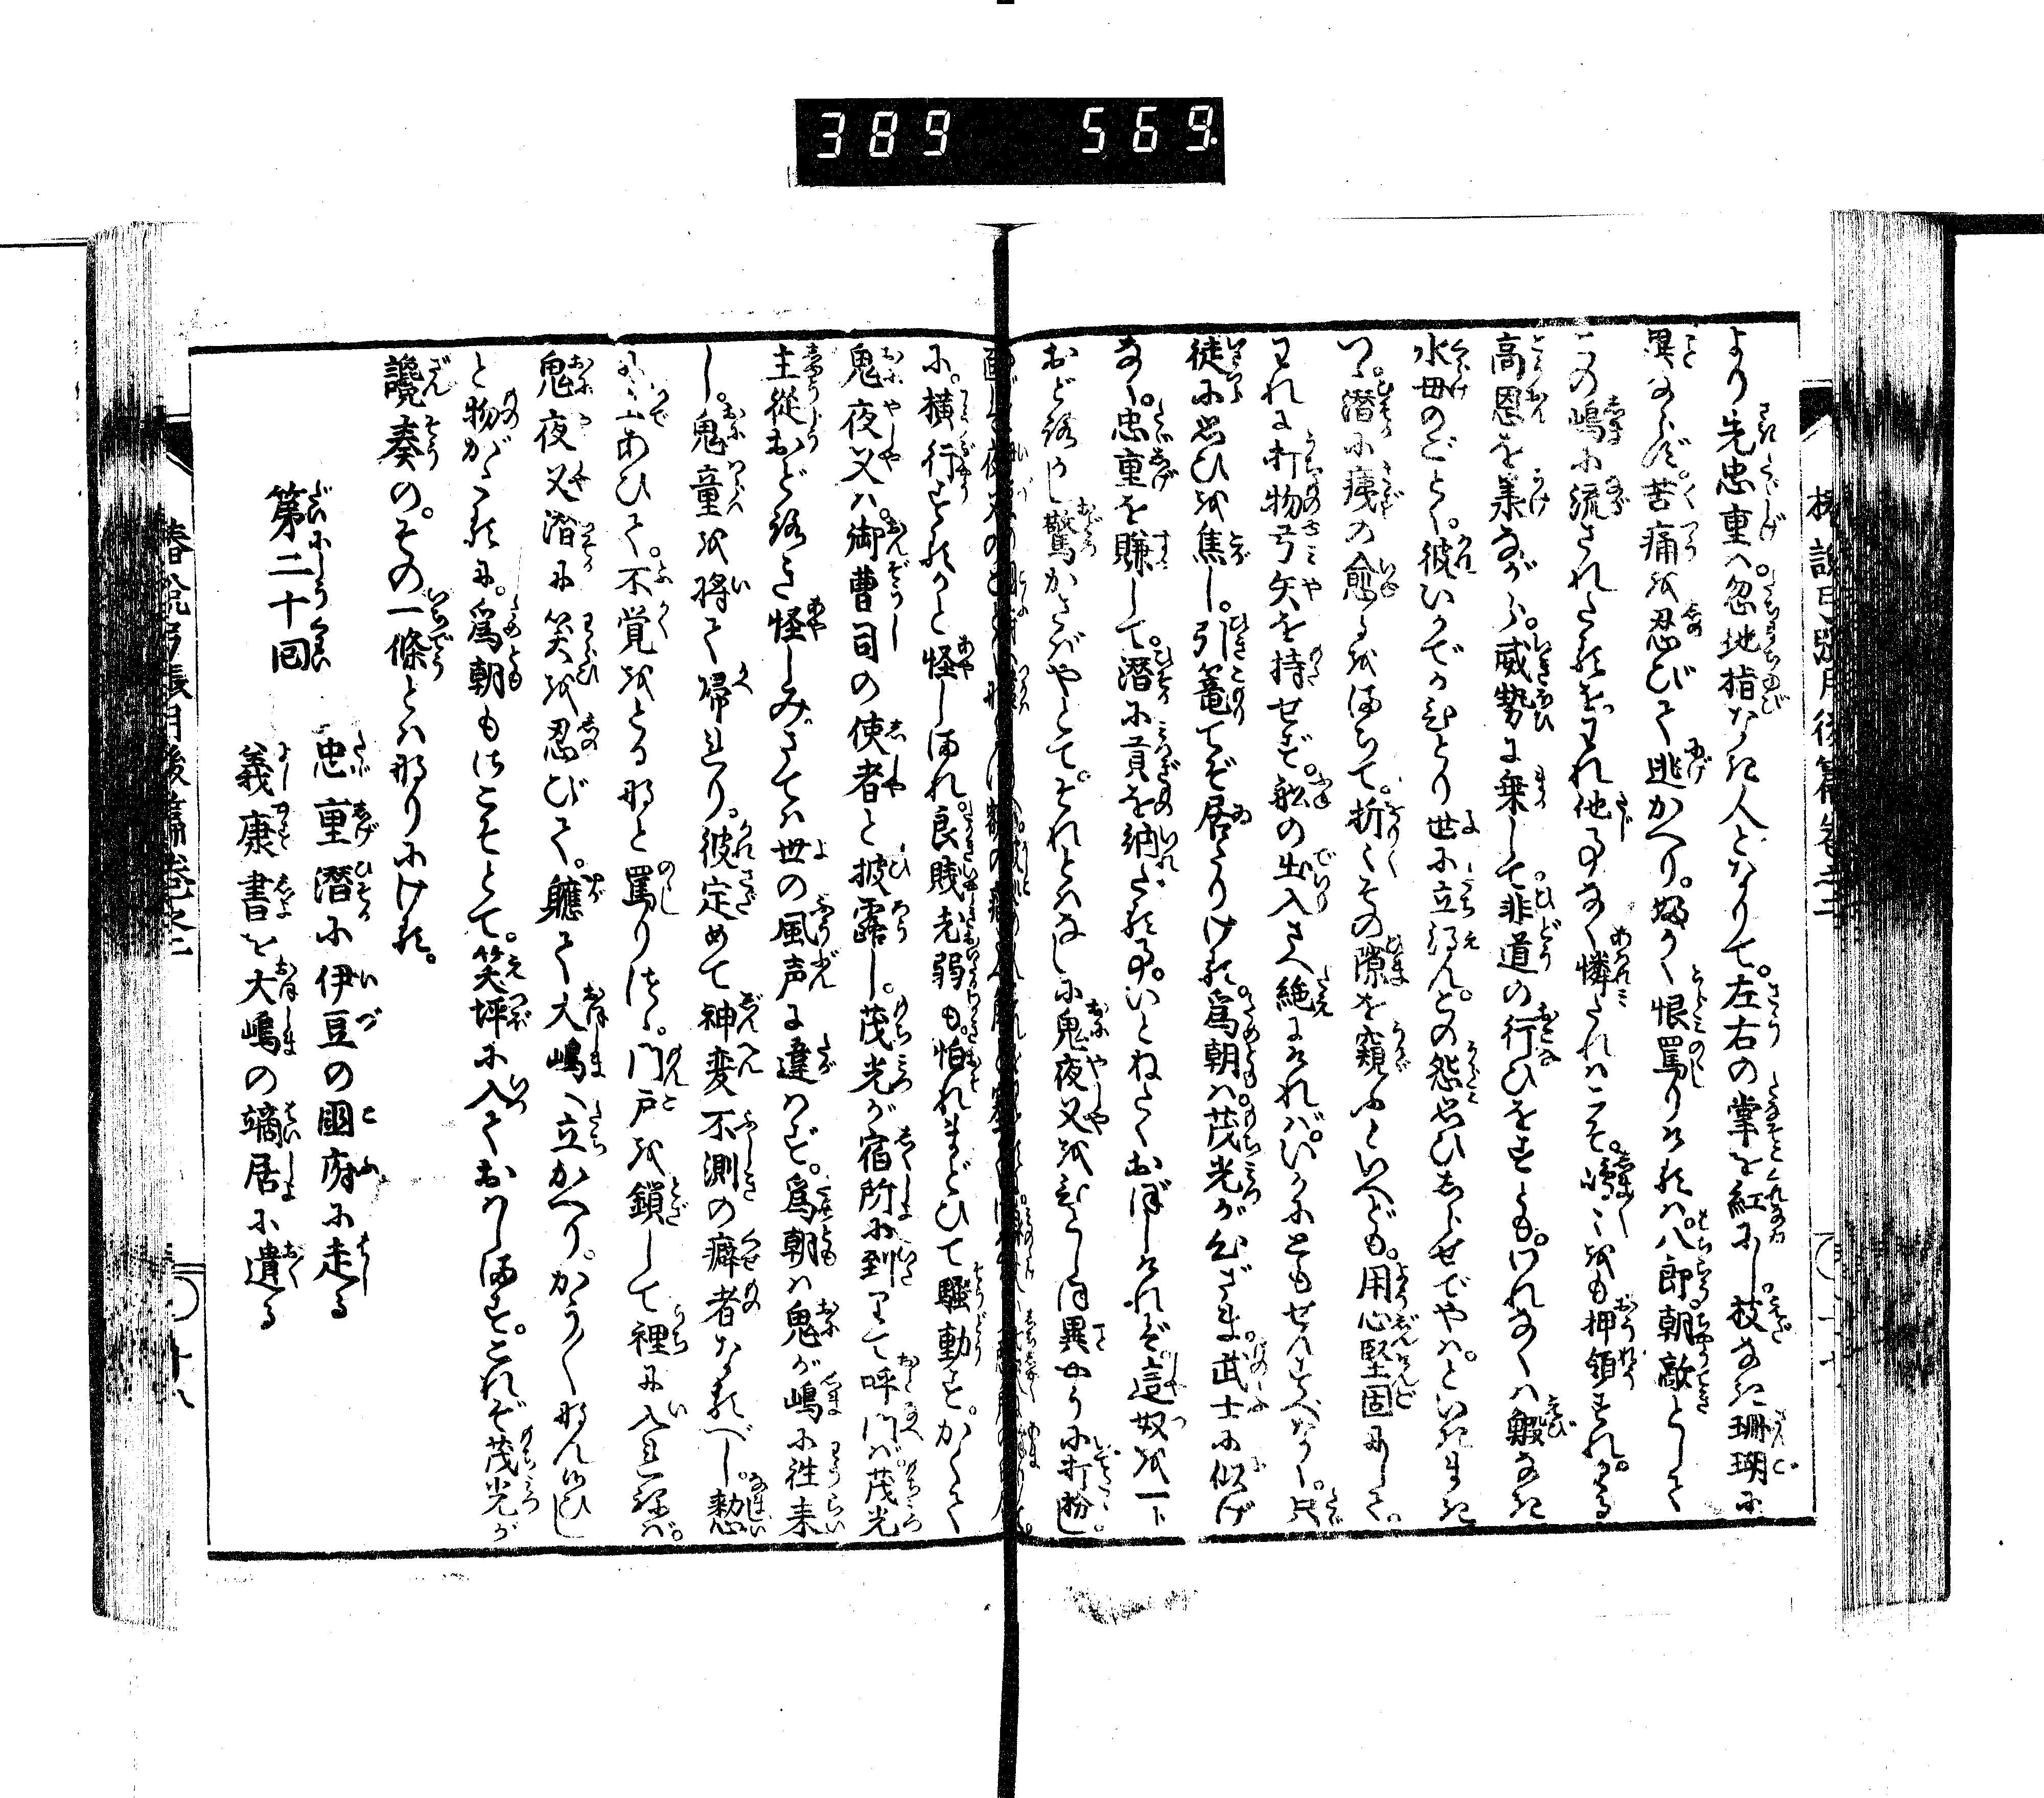 389 569
より先忠重ハ忽地指なき人となりて。左右の掌を紅にし。枝なき珊瑚に
異ならず。苦痛を忍びて逃かへり。
恨罵りけるハ。八郎朝敵として
この嶋に流されたるを。われ他事なく憐たれハこそ。嶋〻をも押領すれ。かゝる
高恩を承ながら。威勢に乗して非道の行ひをすとも。われなくハ鰕なき
水母のごとく。彼いかでかひとり世に立得ん。この怨思ひしらせでやハ。といきまき
つゝ。潜に痍の愈るをまちて。折〻その隙を窺ふといへども。用心堅固にして。
われに打物弓矢を持せず。舩の出入さへ絶にけれバ。いかにともせんすべなく。只
徒に思ひを焦し。引篭てぞ居たりける。爲朝ハ茂光が
武士に似げ
なく。忠重を賺して。潜に貢を納たる事。いとねたくおぼしけれバ。這奴を一ト
おど路かし驚かさばやとて。それとハなしに鬼夜叉を
異やうに打扮し。
に。横行するかと怪しまれ。良賤老弱も。怕れまどひて騒動す。かくて
鬼夜叉ハ。御曹司の使者と披露し。茂光が宿所に到りて呼門バ。茂光
主從おど路き怪しみ。さてハ世の風声に違ハず。爲朝ハ鬼が嶋に徃来
し。鬼童を将て帰れり。彼定めて神変不測の癖者なるべし。憖
に
あひて。不覚をとるなと罵りつゝ。門戸を鎖して裡に入れねバ。
鬼夜叉潜に笑を忍びて。軈て大嶋へ立かへり。かう〳〵なん侍ひし
と物がたるに。爲朝もさこそとて。笑坪に入ておハします。これぞ茂光が
讒奏の。その一條とハなりにける。
第二十回
忠重潜に伊豆の國府に走る
義康書を大嶋の謫居に遺る